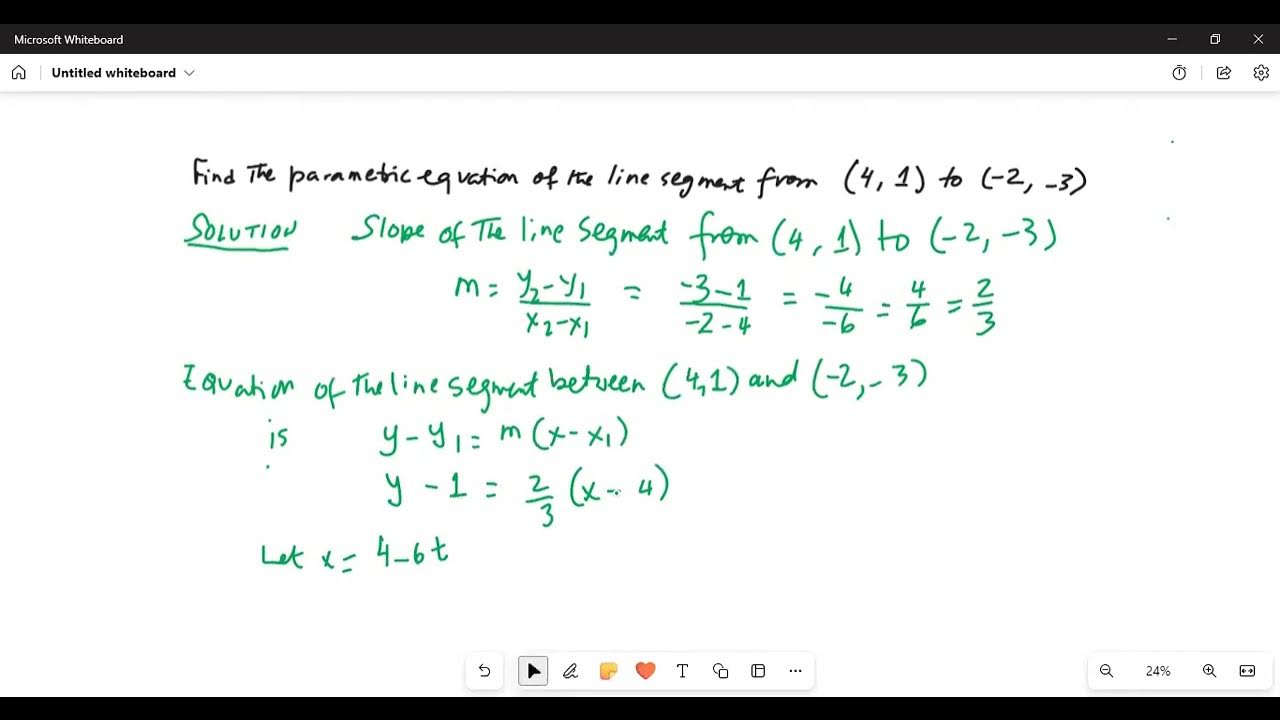 Microsoft Whiteboard
Untitled whiteboard
Find The parametric equation of the line segment from (4, 1) to (-2, -3)
SOLUTION Slope of The line segment from (4, 1) to (-2, -3)
m = y₂-y₁/x₂-x₁ = -3-1/-2-4 = -4/-6 = 4/6 = 2/3
Equation of the line segment between (4,1) and (-2, -3)
is y - y₁ = m(x - x₁)
y - 1 = 2/3 (x - 4)
Let x = 4-6t
T
24%